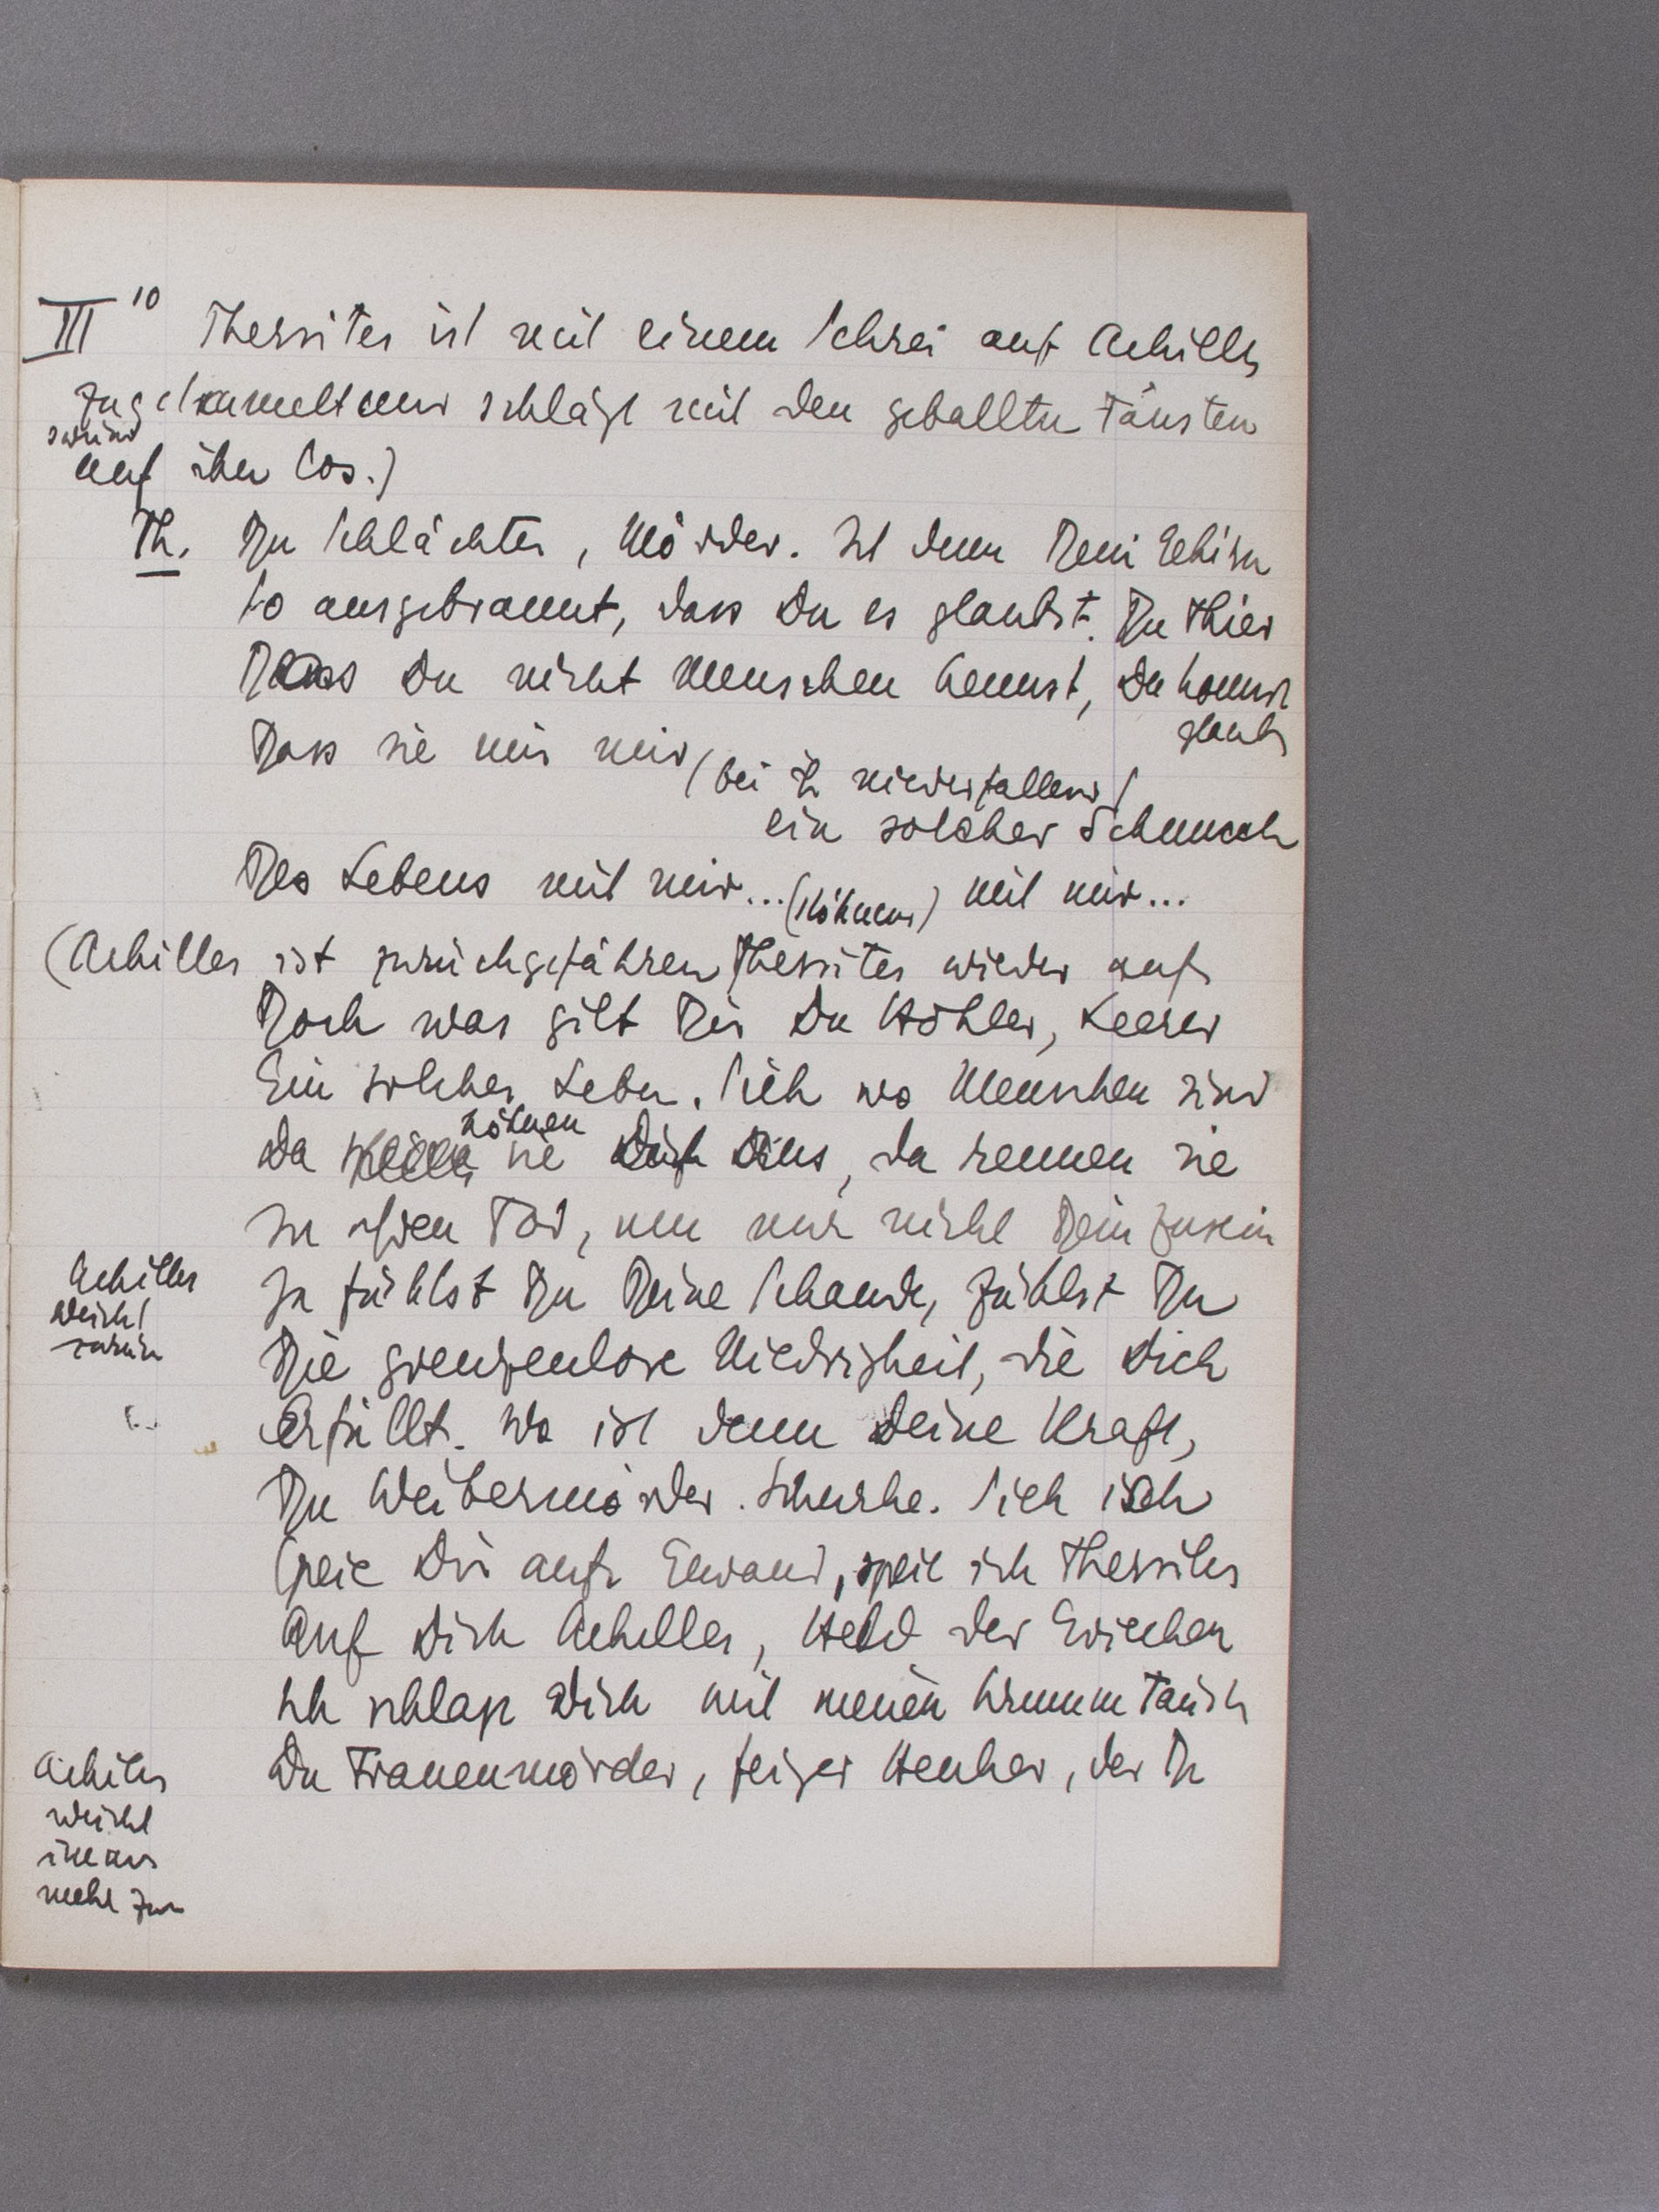 III 10 Thersites ist mit einem Schrei auf Achilles
zugetaumelt und schlägt mit den geballten Fäusten
auf ihn los.)
Th. Du Schlächter, Mörder. Ist denn Dein Gehirn
so ausgebrannt, dass Du es glaubst. Du Thier
Dass Du nicht Menschen kennst, Du konnst
glaubs
Dass sie mir mir (bei ihr niederfallend)
ein solcher Schmuck
Des Lebens mit mir... (höhnend) mit mir...
(Achilles ist zurückgefahren Thersites wieder auf
Doch was gilt Dir Du Hohler, Leerer
Ein solches Leben. Sieh wo Menschen sind
höhnen
Da sie Dich aus, da rennen sie
in den Tod, um nur nicht Dein zu sein
Achilles
weicht
zurück
Ja fühlst Du Deine Schande, fühlst Du
Die grenzenlose Niedrigkeit, die Dich
Erfüllt. Wo ist denn Deine Kraft,
Du Weibermörder. Schurke. Sieh ich
speie Dir aufs Gewand, speie ich Thersites
Auf Dich Achilles, Held der Griechen
Ich schlage Dich mit meinen krummen Fäusten
Du Frauenmörder, feiger Henker, der Du
Achilles
weicht
immer
mehr zur